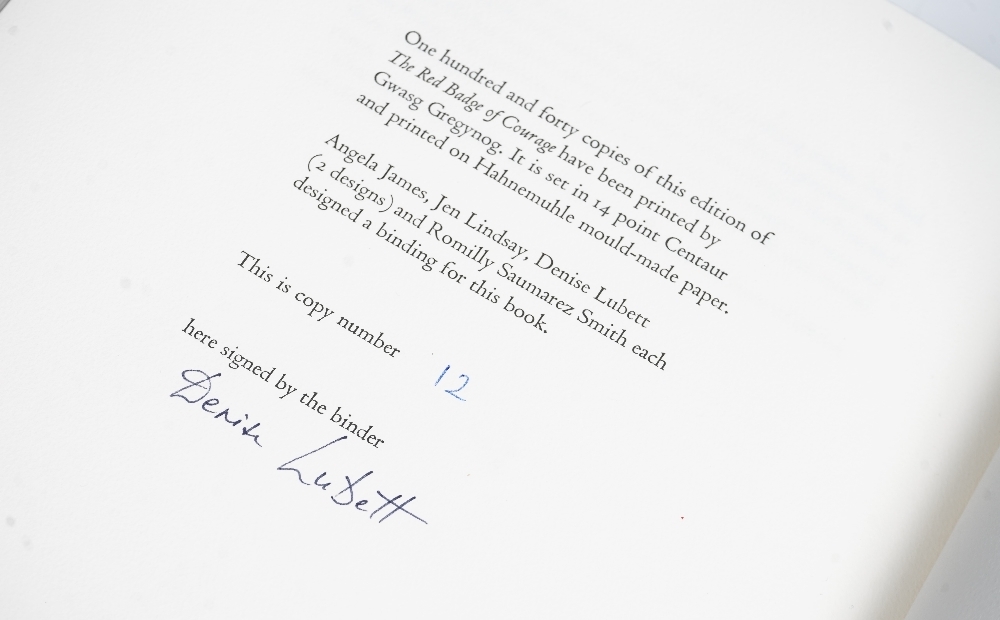 One hundred and forty copies of this edition of
The Red Badge of Courage have been printed by
Gwasg Gregynog. It is set in 14 point Centaur
and printed on Hahnemuhle mould-made paper.
Angela James, Jen Lindsay, Denise Lubett
(2 designs) and Romilly Saumarez Smith each
designed a binding for this book.
This is copy number 12
here signed by the binder
Denise Lubett